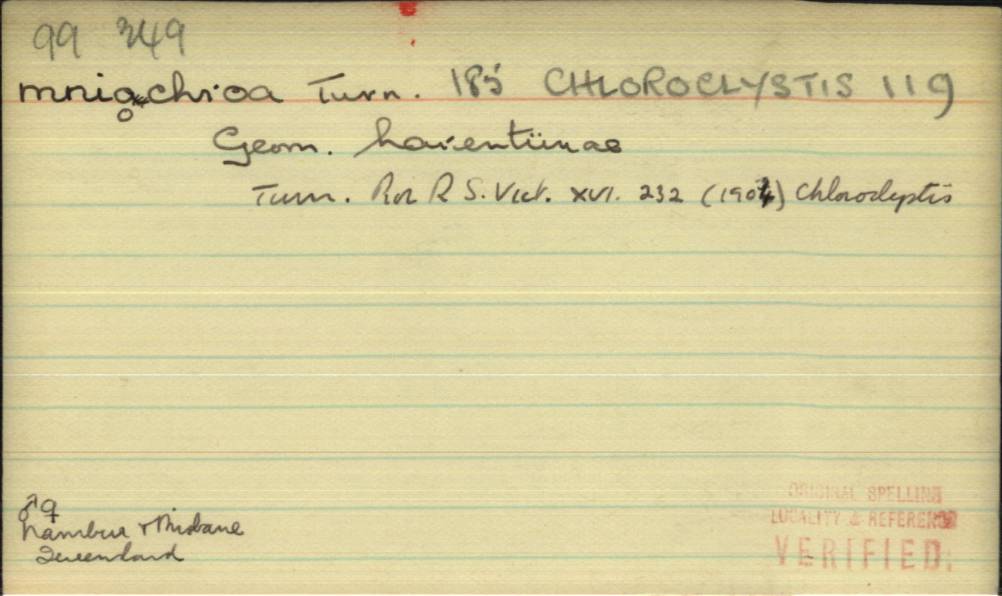 99 349
mniochroa Turn. 185 CHLOROCLYSTIS 119
Geom. Larentiinae
Turn. Proc R S. Vict. XVI. 232 (1904) Chloroclystis
♂♀
Nambur & Brisbane
Queensland
ORIGINAL SPELLING
LOCALITY & REFERENCE
VERIFIED.